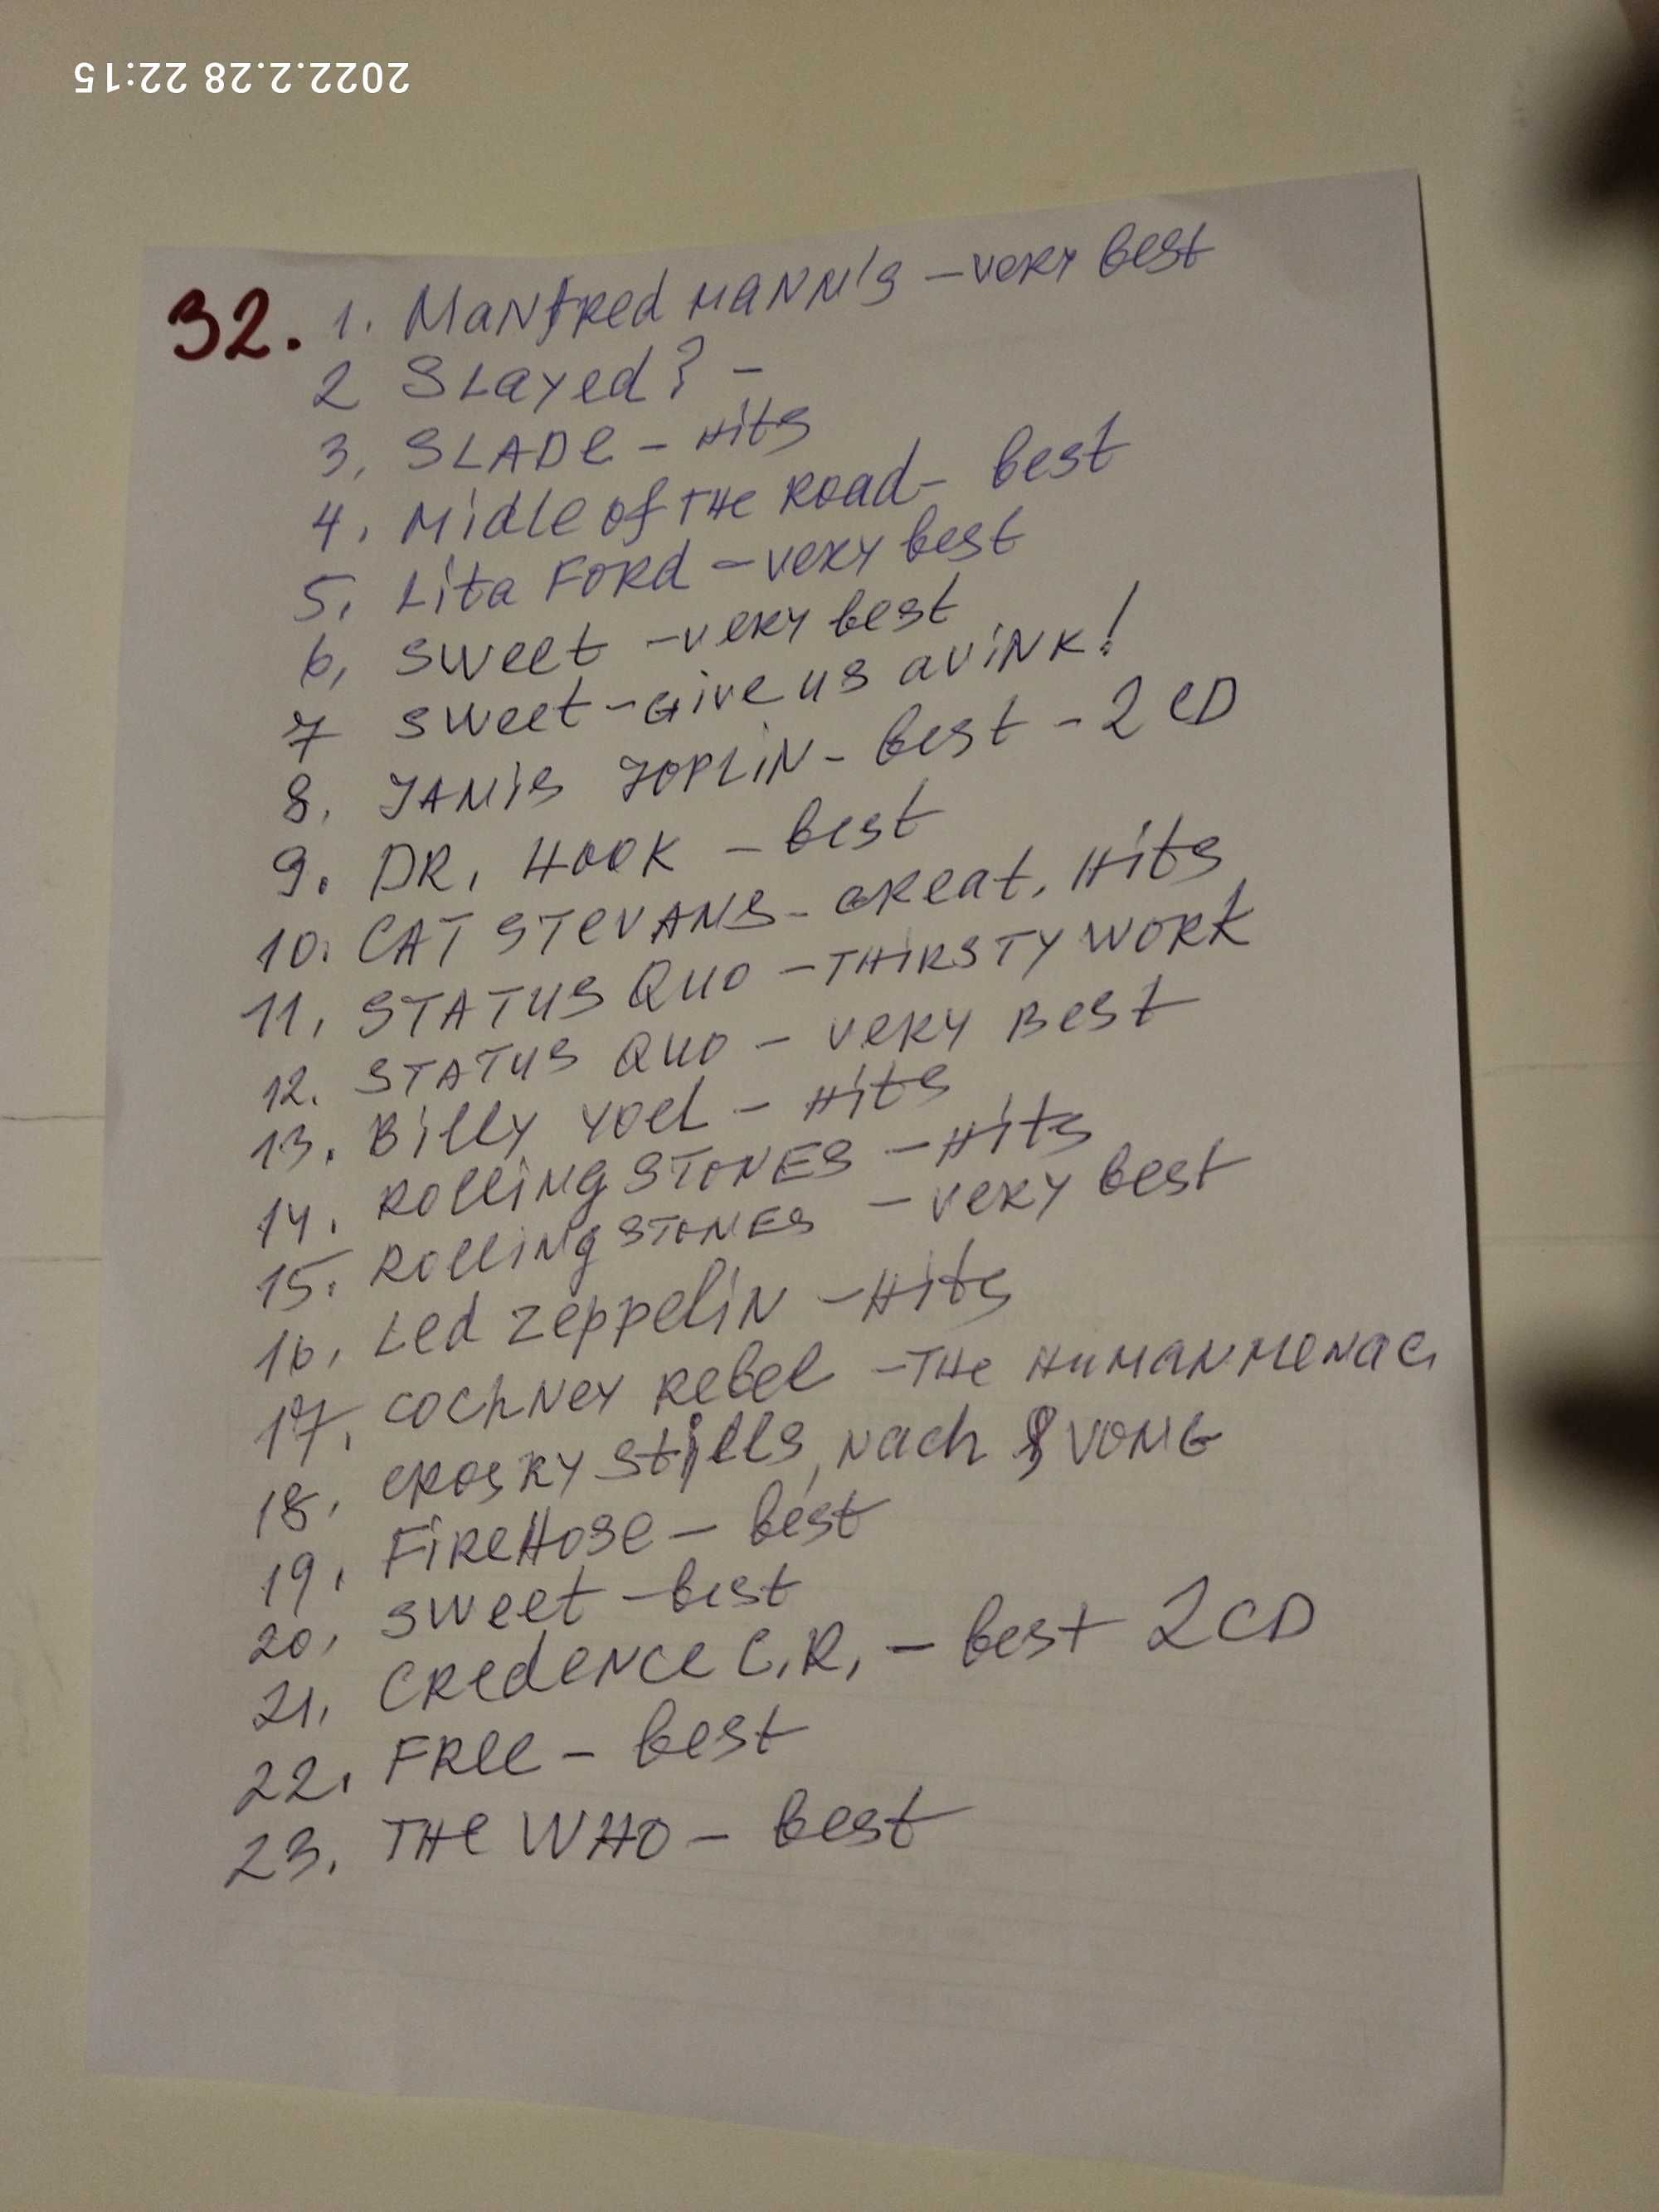 2022.2.28 22:15
32. 1. Manfred Mann's - very best
2 Slayed? -
3. SLADE - Hits
4. Midle of THE Road - best
5. Lita Ford - very best
6. Sweet - very best
7 Sweet - Give us a vink!
8. JANIS JOPLIN - best - 2 CD
9. DR. HOOK - best
10. CAT STEVANS - Great. Hits
11. STATUS QUO - THIRSTY WORK
12. STATUS QUO - very Best
13. Billy Yoel - Hits
14. Rolling STONES - Hits
15. Rolling STONES - very best
16. Led Zeppelin - Hits
17. Cochney Rebel - THE HUMAN MENAC.
18. Crosky Stills, Nach & VONG
19. FireHose - best
20. Sweet - best
21. Credence C.R. - best 2CD
22. Free - best
23. THE WHO - best